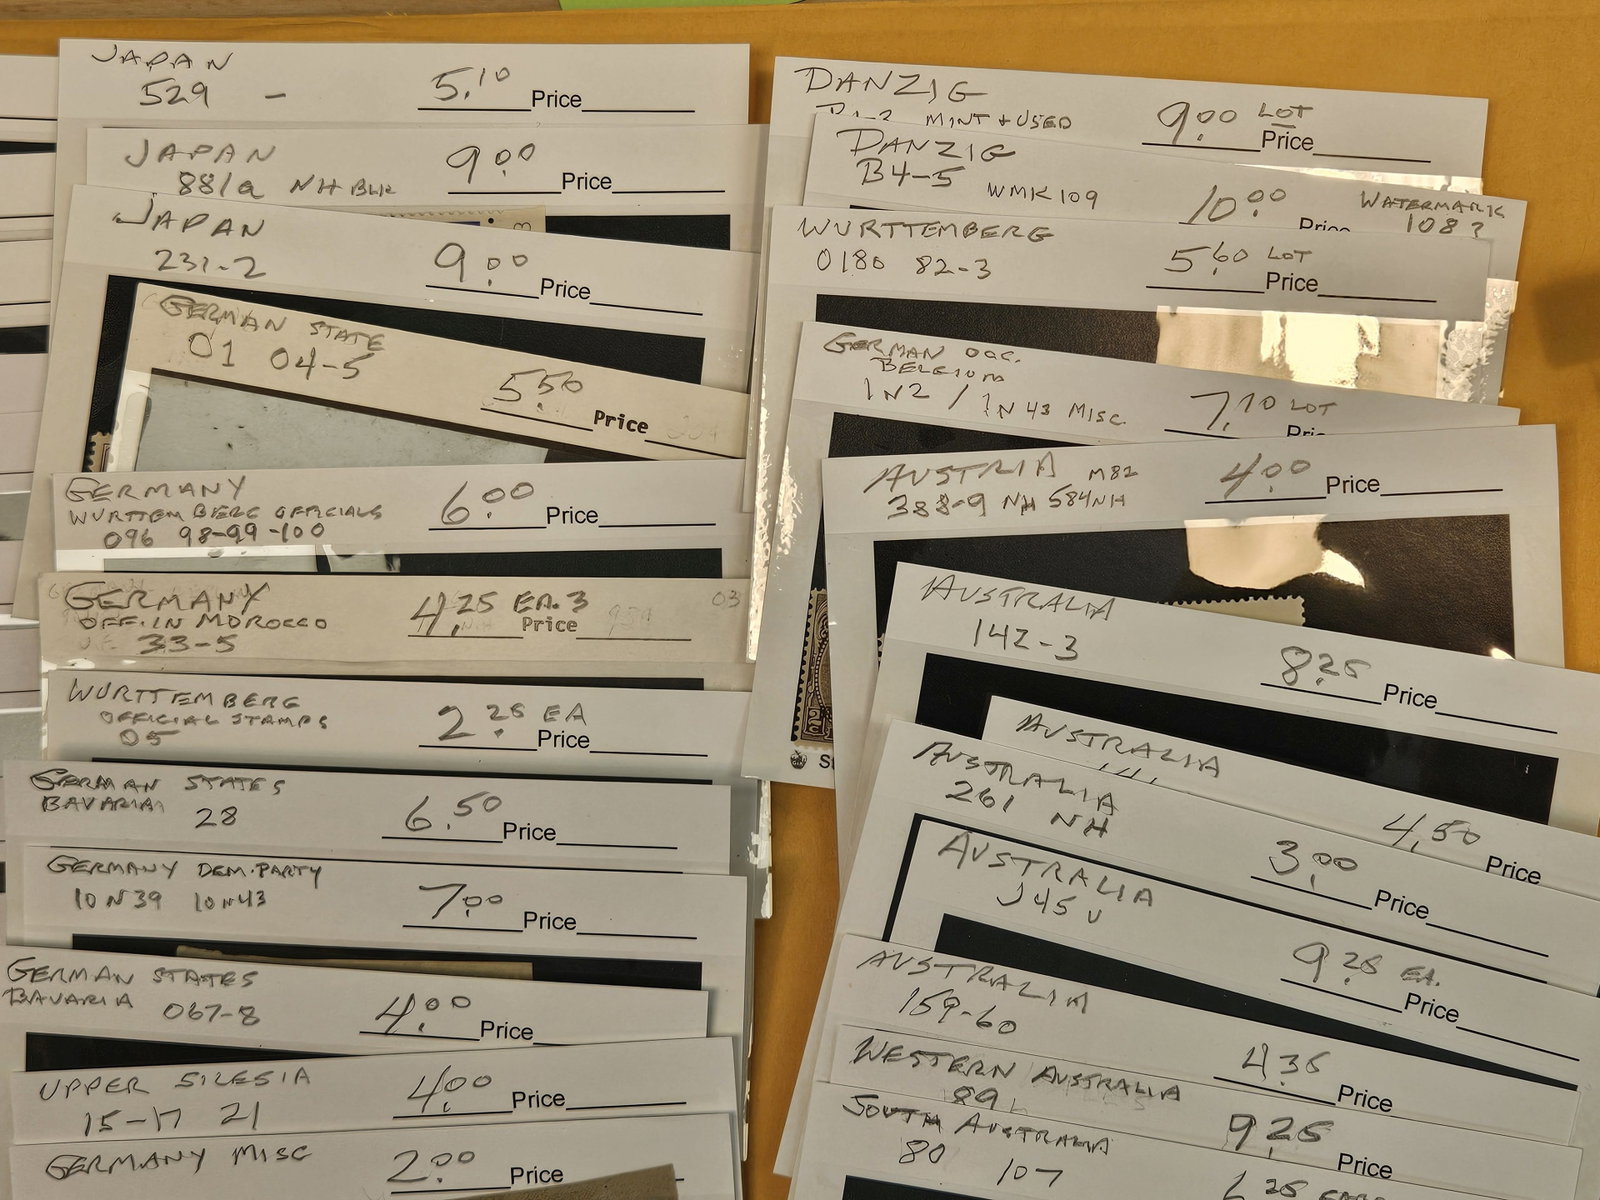 JAPAN
529 - 5.10 Price
JAPAN
881a NH BLK 9.00 Price
JAPAN
231-2 9.00 Price
GERMAN STATE
01 04-5 5.50 Price
GERMANY
WURTTEMBERG OFFICIALS
096 98-99-100 6.00 Price
GERMANY
OFF. IN MOROCCO
33-5 4.25 EA. 3 Price
WURTTEMBERG
OFFICIAL STAMPS
05 2.25 EA Price
GERMAN STATES
BAVARIA
28 6.50 Price
GERMANY DEM. PARTY
10N39 10N43 7.00 Price
GERMAN STATES
BAVARIA 067-8 4.00 Price
UPPER SILESIA
15-17 21 4.00 Price
GERMANY MISC 2.00 Price
DANZIG
MINT + USED 9.00 LOT Price
DANZIG
B4-5 WMK 109 10.00 Price WATERMARK
108?
WURTTEMBERG
0180 82-3 5.60 LOT Price
GERMAN OCC.
BELGIUM
1N2 / 1N43 MISC. 7.10 LOT Price
AUSTRIA M82
388-9 NH 584NH 4.00 Price
AUSTRALIA
142-3 8.25 Price
AUSTRALIA
4.50 Price
AUSTRALIA
261 NH 3.00 Price
AUSTRALIA
J45 9.25 EA. Price
AUSTRALIA
159-60 4.35 Price
WESTERN AUSTRALIA
89 9.25 Price
SOUTH AUSTRALIA
80 107